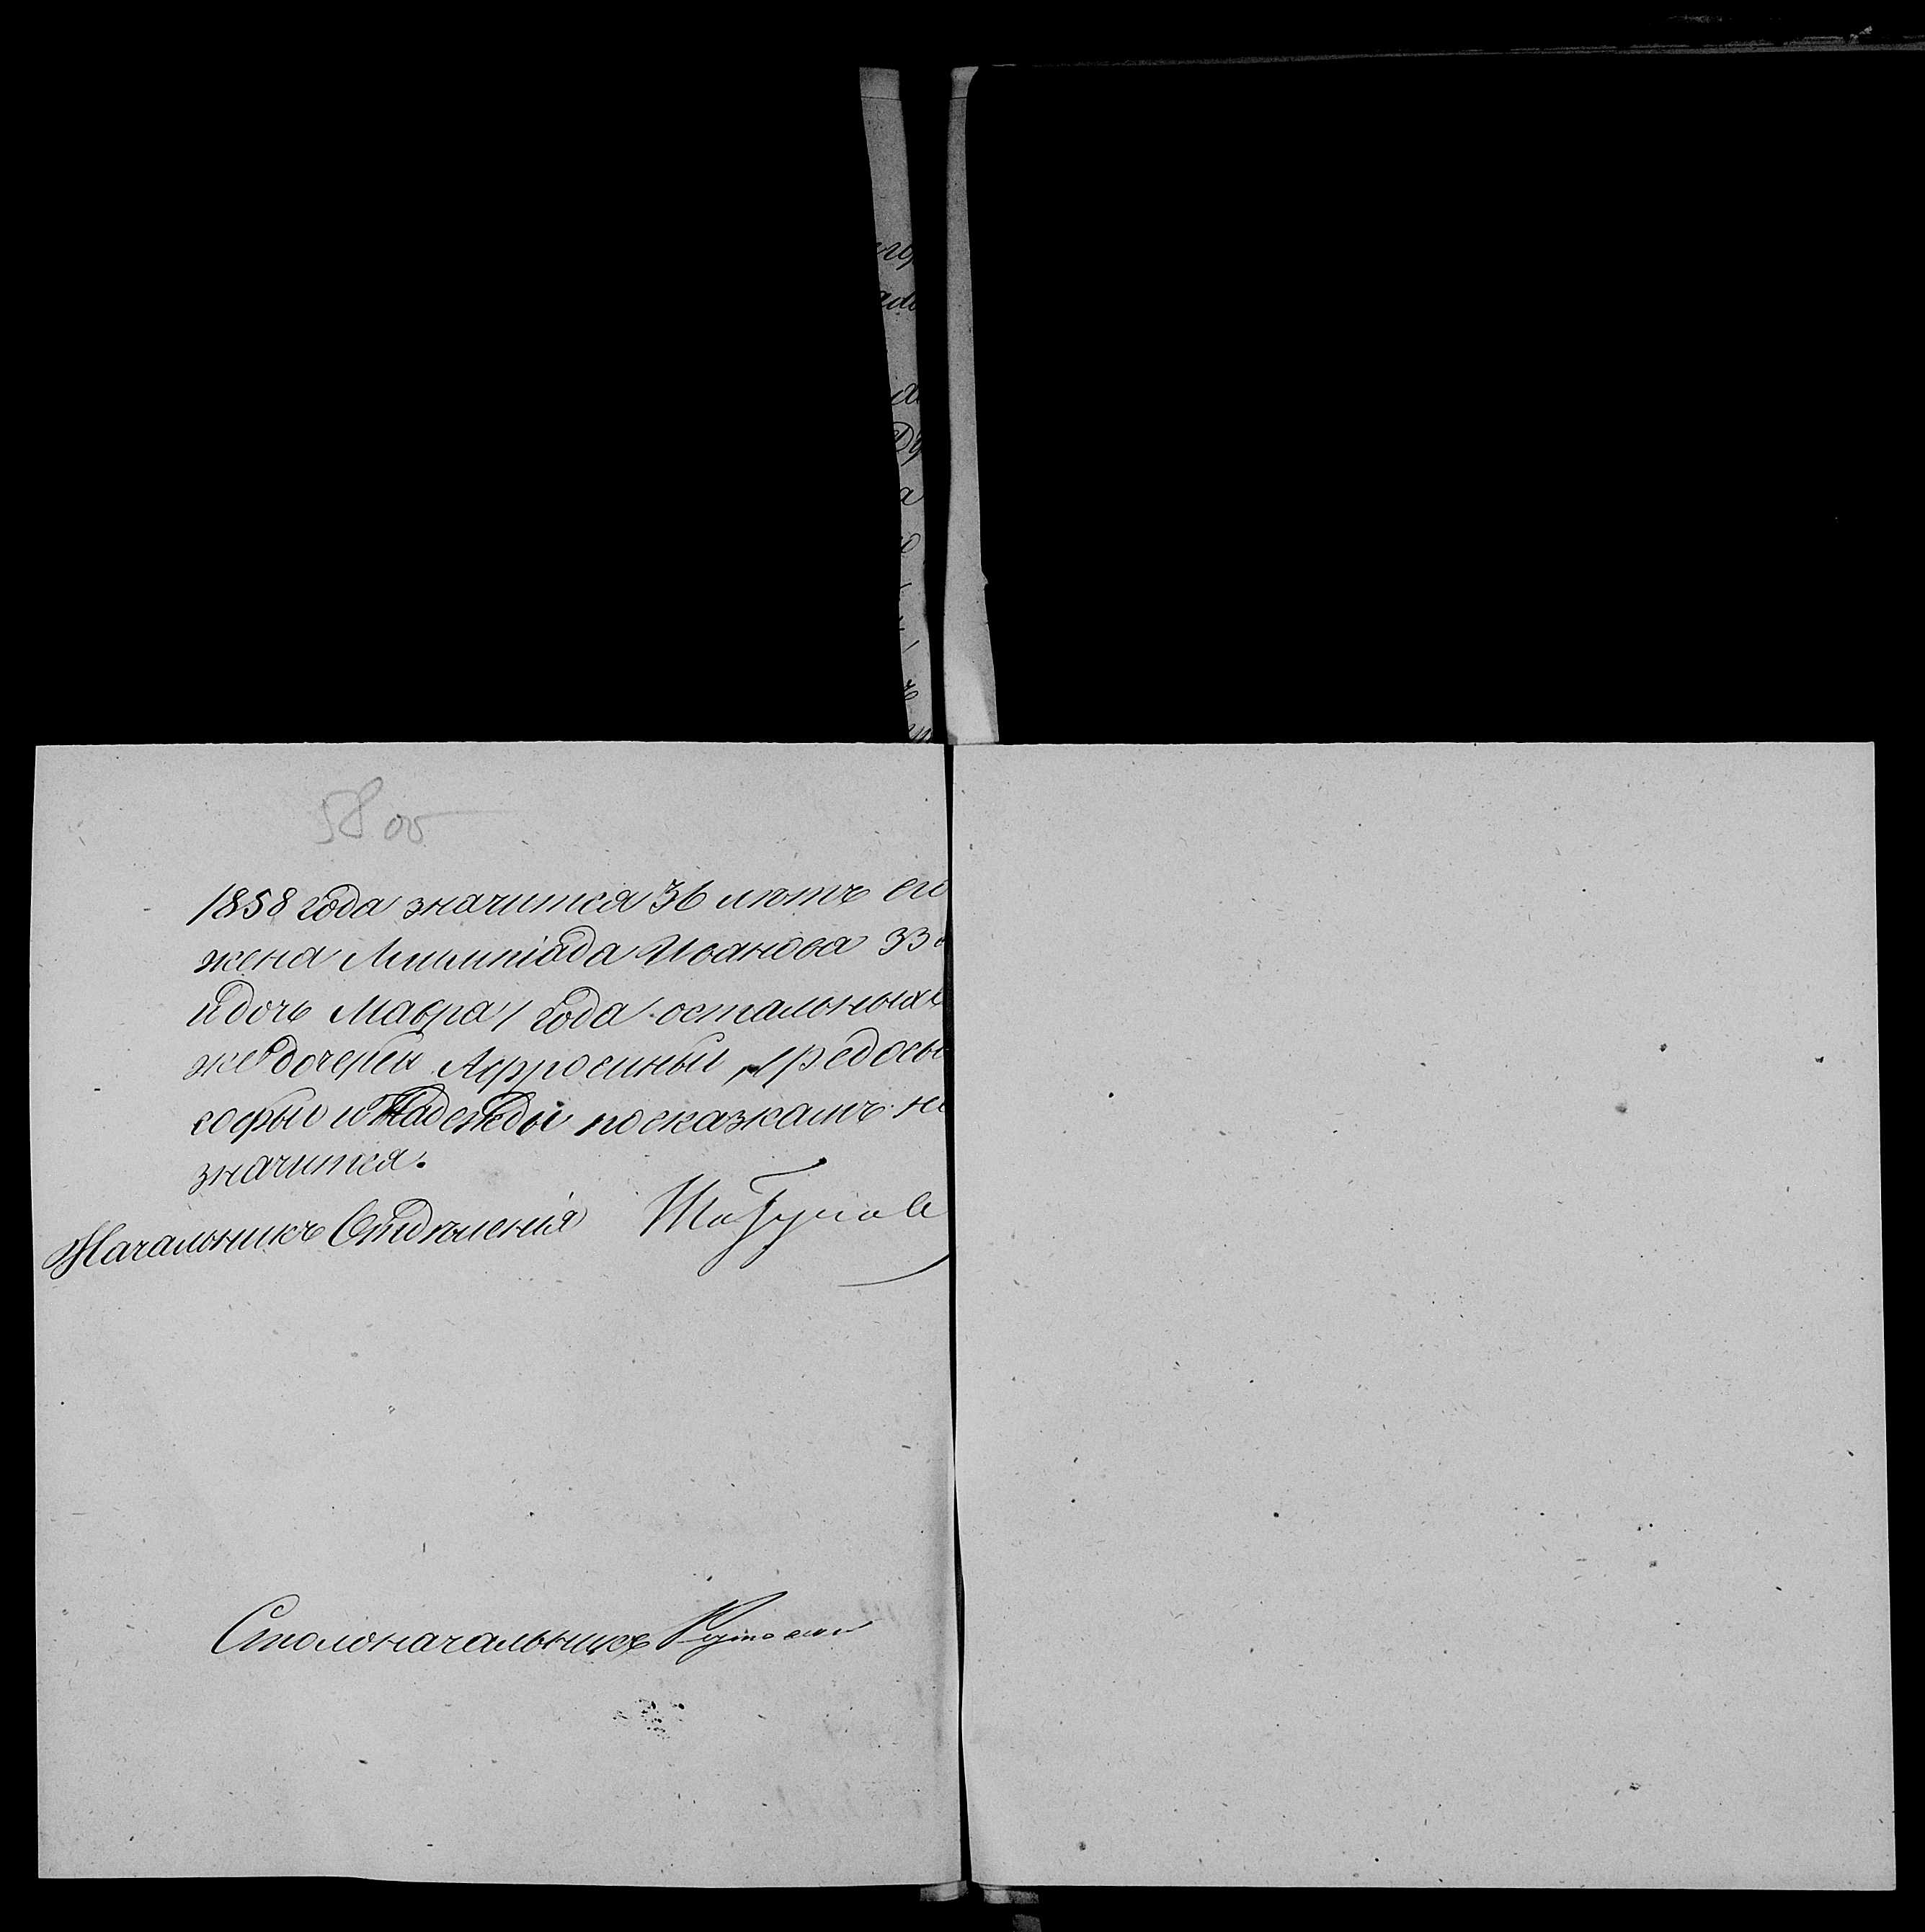 58 об
1858 года значится 36 лѣтъ ег
жена Алимпіада Иванова 33
и дочь Мавра 1 года остальныхъ
же дочерей Афросиньи, Федосьи
софьи и Надежды по сказкамъ не
значится.
Начальникъ Отдѣленія
Столоначальникъ